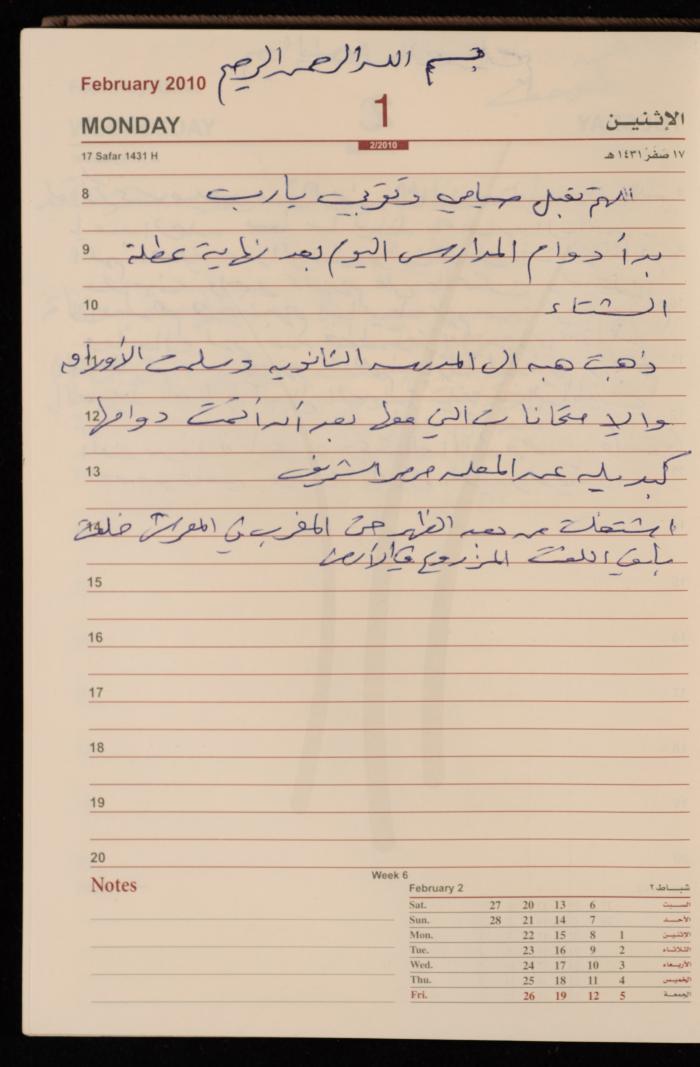 بسم الله الرحمن الرحيم
February 2010
1
MONDAY
الإثنين
2/2010
17 Safar 1431 H
١٧ صفر ١٤٣١ هـ
8 اللهم تقبل صيامي وتقربي يارب
9 بدأ دوام المدارس اليوم بعد نهاية عطلة
10 الشتاء
11 ذهبت هبه الى المدرسه الثانويه وسلمت الأوراق
12 والإمتحانات التي معها بعد أن أتمت دوامها
13 كبديله عن المعلمه الشريف
14 اشتغلت من بعد الظهر حتى المغرب في خلعت
باقي اللفت المزروع في الأرض
15
16
17
18
19
20
Notes
Week 6
February 2 شباط ٢
Sat. 27 20 13 6 السبت
Sun. 28 21 14 7 الأحد
Mon. 22 15 8 1 الاثنين
Tue. 23 16 9 2 الثلاثاء
Wed. 24 17 10 3 الأربعاء
Thu. 25 18 11 4 الخميس
Fri. 26 19 12 5 الجمعة